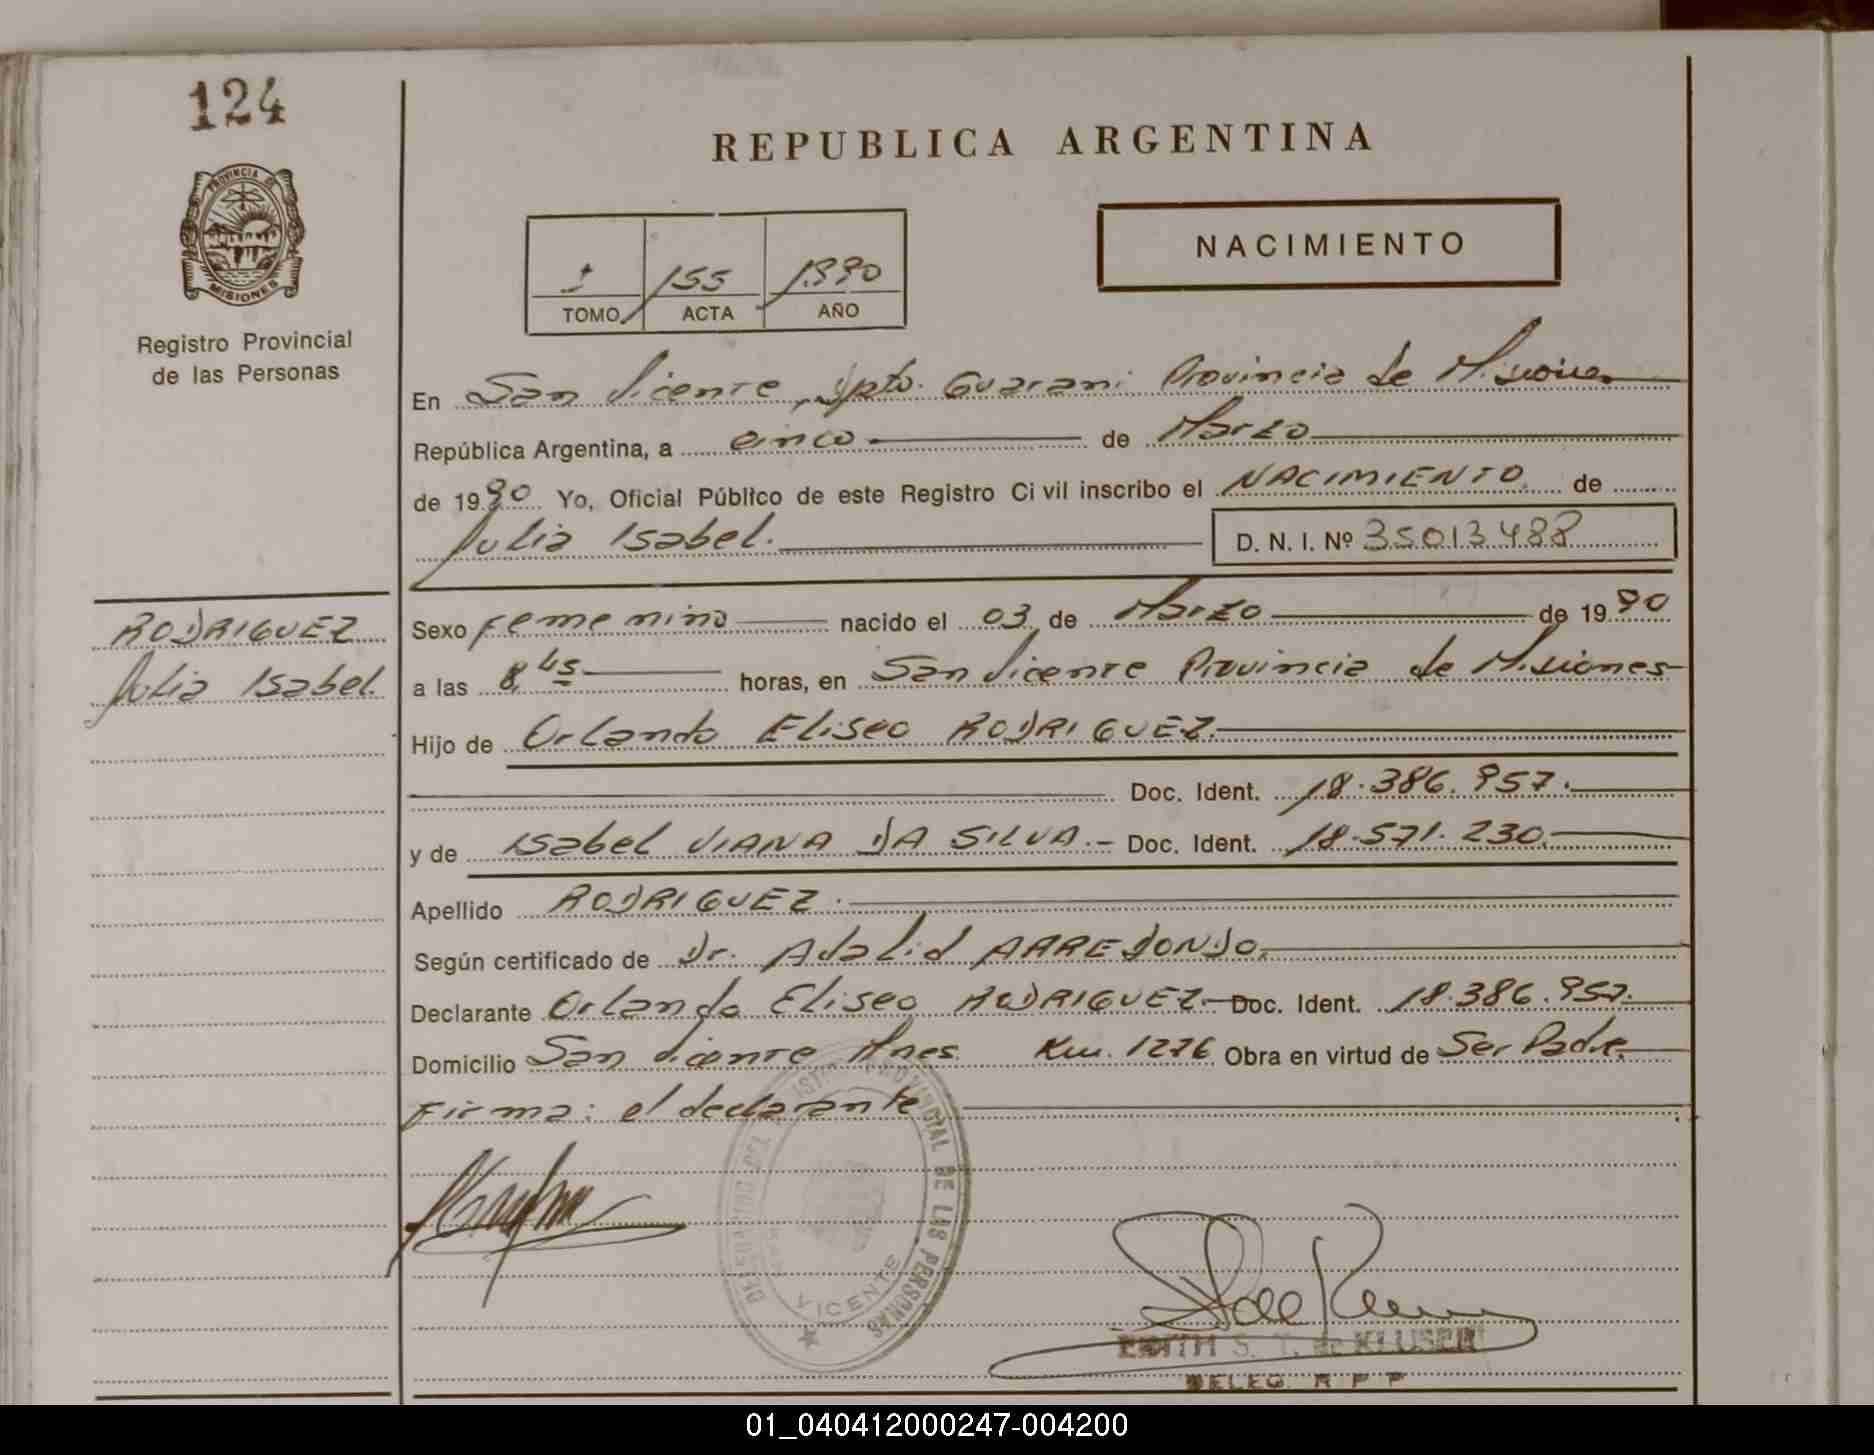 124
REPUBLICA ARGENTINA
PROVINCIA DE
MISIONES
Registro Provincial
de las Personas
1 155 1990
TOMO ACTA AÑO
NACIMIENTO
En San Vicente, Dpto. Guarani Provincia de Misiones
República Argentina, a cinco de Marzo
de 1990 Yo, Oficial Público de este Registro Civil inscribo el NACIMIENTO de
Julia Isabel. D. N. I. Nº 35013488
RODRIGUEZ
Julia Isabel.
Sexo femenino nacido el 03 de Marzo de 1990
a las 8,45 horas, en San Vicente Provincia de Misiones
Hijo de Orlando Eliseo RODRIGUEZ.
Doc. Ident. 18.386.957.
y de Isabel VIANA DA SILVA.- Doc. Ident. 18.571.230.
Apellido RODRIGUEZ.
Según certificado de Dr. Adalid ARREDONDO.
Declarante Orlando Eliseo RODRIGUEZ.- Doc. Ident. 18.386.957.
Domicilio San Vicente Mnes. Km. 1276 Obra en virtud de Ser Padre
Firma: el declarante
PROVINCIAL DE LAS PERSONAS
VICENTE
EDITH S. T. de KLUSENER
DELEG. R P P
01_040412000247-004200